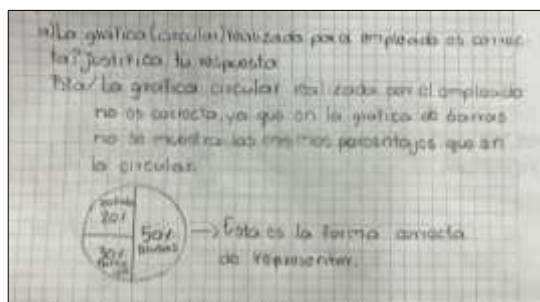 a) La gráfica (circular) realizada por el empleado es correc
ta? Justifica tu respuesta
Rta/ La grafica circular realizada por el empleado
no es correcta, ya que en la grafica de barras
no se muestra los mismos porcentajes que en
la circular.
20%
50%
30%
→ Esta es la forma correcta
de representar.